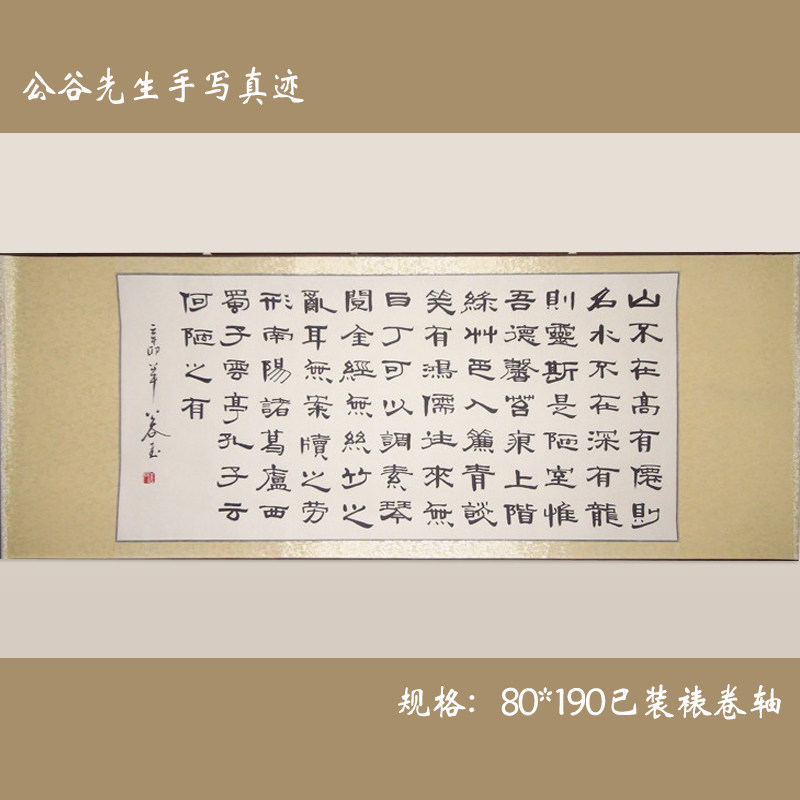 公谷先生手写真迹
山不在高有僊則
名水不在深有龍
則靈斯是陋室惟
吾德馨苔痕上階
綠艸色入簾青談
笑有鴻儒往來無
白丁可以調素琴
閱金經無絲竹之
亂耳無案牘之勞
形南陽諸葛廬西
蜀子雲亭孔子云
何陋之有
辛卯
规格：80*190已装裱卷轴